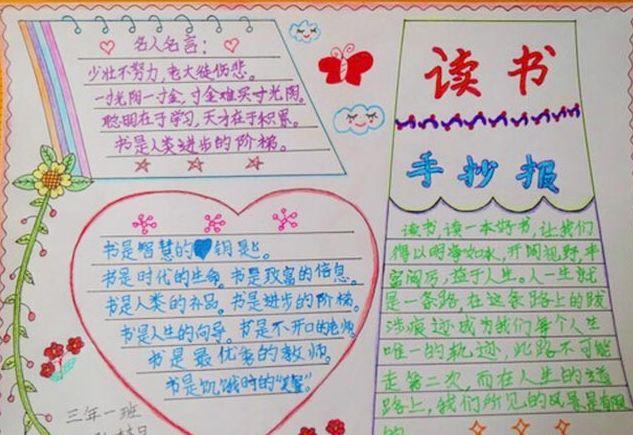 名人名言：
少壮不努力，老大徒伤悲。
一寸光阴一寸金，寸金难买寸光阴。
聪明在于学习，天才在于积累。
书是人类进步的阶梯。
读书
手抄报
书是智慧的钥匙。
书是时代的生命。书是致富的信息。
书是人类的补品。书是进步的阶梯。
书是人生的向导。书是不开口的老师。
书是最优秀的教师。
书是饥饿时的"煤"。
读书，读一本好书，让我们
得以明净如水，开阔视野，丰
富阅历，益于人生。人一生就
是一条路，在这条路上的跋
涉痕迹成为我们每个人生
唯一的轨迹，此路不可能
走第二次，而在人生的道
路上，我们所见的风景是有限
的
三年一班